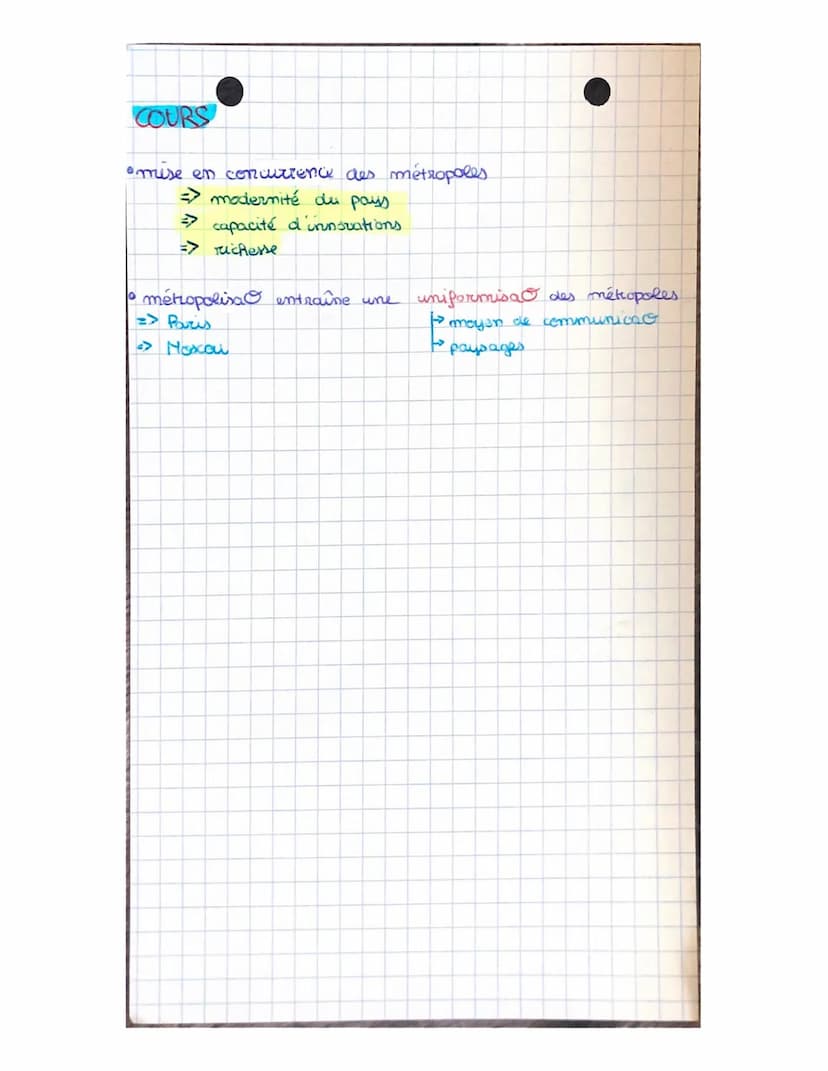 COURS
• mise en concurrence des métropoles
=> modernité du pays
=> capacité d'innovations
=> richesse
• métropolisaO entraîne une uniformisaO des métropoles
=> Paris
↳ moyen de communicaO
=> Moscou
↳ paysages